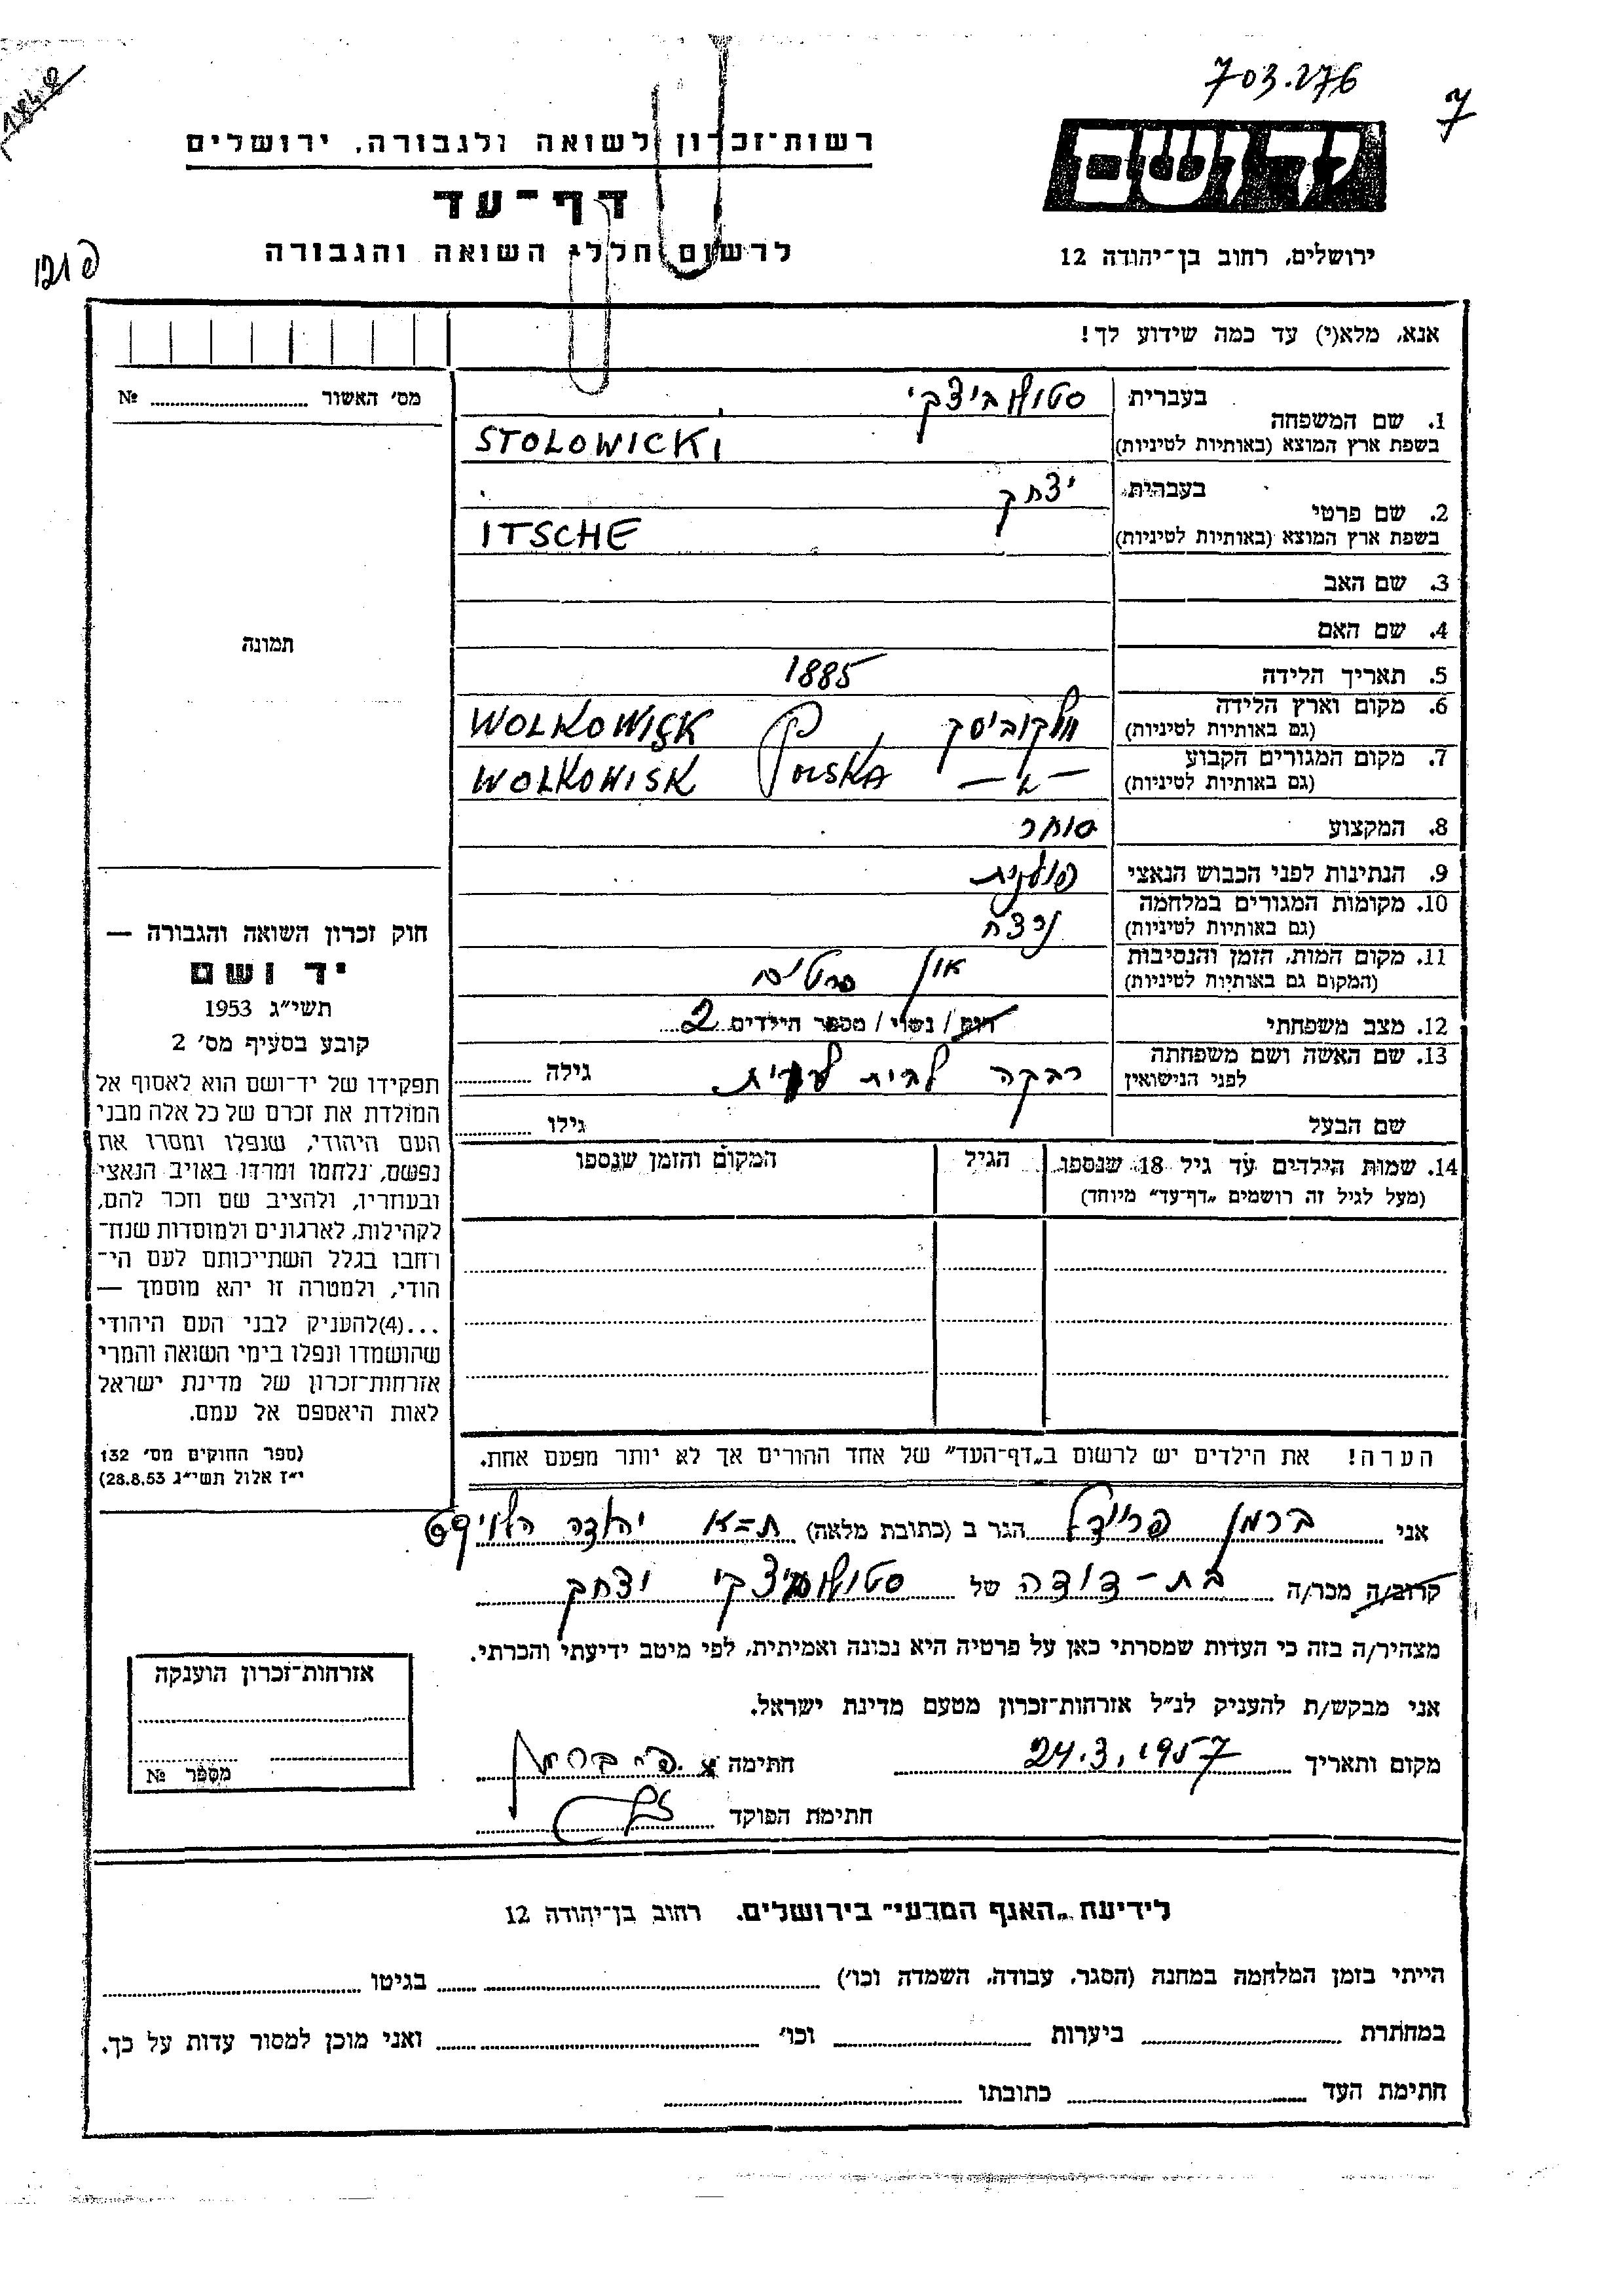 703.276
7
רשות־זכרון לשואה ולגבורה, ירושלים
דף־עד
לרשום חללי השואה והגבורה
ידושם
ירושלים, רחוב בן־יהודה 12
אנא, מלא(י) עד כמה שידוע לך!
מס׳ האשור № 
1. שם המשפחה
בעברית סטולוביצקי
בשפת ארץ המוצא (באותיות לטיניות) STOLOWICKI
2. שם פרטי
בעברית יצחק
בשפת ארץ המוצא (באותיות לטיניות) ITSCHE
3. שם האב
4. שם האם
תמונה
5. תאריך הלידה 1885
6. מקום וארץ הלידה וולקוביסק WOLKOWISK
(גם באותיות לטיניות)
7. מקום המגורים הקבוע POLSKA WOLKOWISK
(גם באותיות לטיניות)
8. המקצוע סוחר
9. הנתינות לפני הכבוש הנאצי פולנית
10. מקומות המגורים במלחמה
(גם באותיות לטיניות) נרצח
11. מקום המות, הזמן והנסיבות אין פרטים
(המקום גם באותיות לטיניות)
12. מצב משפחתי רווק / נשוי / מספר הילדים 2
13. שם האשה ושם משפחתה
לפני הנישואין רבקה לבית גילה
שם הבעל גילו
14. שמות הילדים עד גיל 18 שנספו הגיל המקום והזמן שנספו
(מעל לגיל זה רושמים „דף־עד״ מיוחד)
הערה! את הילדים יש לרשום ב„דף־העד״ של אחד ההורים אך לא יותר מפעם אחת.
חוק זכרון השואה והגבורה —
יד ושם
תשי״ג 1953
קובע בסעיף מס׳ 2
תפקידו של יד־ושם הוא לאסוף אל
המולדת את זכרם של כל אלה מבני
העם היהודי, שנפלו ומסרו את
נפשם, נלחמו ומרדו באויב הנאצי
ובעוזריו, ולהציב שם וזכר להם,
לקהילות, לארגונים ולמוסדות שנח־
רחבו בגלל השתייכותם לעם הי־
הודי, ולמטרה זו יהא מוסמך —
...(4)להעניק לבני העם היהודי
שהושמדו ונפלו בימי השואה והמרי
אזרחות־זכרון של מדינת ישראל
לאות היאספם אל עמם.
(ספר החוקים מס׳ 132
י״ז אלול תשי״ג 28.8.53)
אני ברמן פריידל הגר ב (כתובת מלאה) ת=א יהודה הלוי
קרוב/ה מכר/ה בת-דודה של סטולוביצקי יצחק
מצהיר/ה בזה כי העדות שמסרתי כאן על פרטיה היא נכונה ואמיתית, לפי מיטב ידיעתי והכרתי.
אני מבקש/ת להעניק לנ״ל אזרחות־זכרון מטעם מדינת ישראל.
מקום ותאריך 24.3.1957 חתימה
חתימת הפוקד
אזרחות־זכרון הוענקה
מספר №
לידיעת „האגף המדעי״ בירושלים, רחוב בן־יהודה 12
הייתי בזמן המלחמה במחנה (הסגר, עבודה, השמדה וכו׳) בגיטו
במחתרת ביערות וכו׳ ואני מוכן למסור עדות על כך.
חתימת העד כתובתו